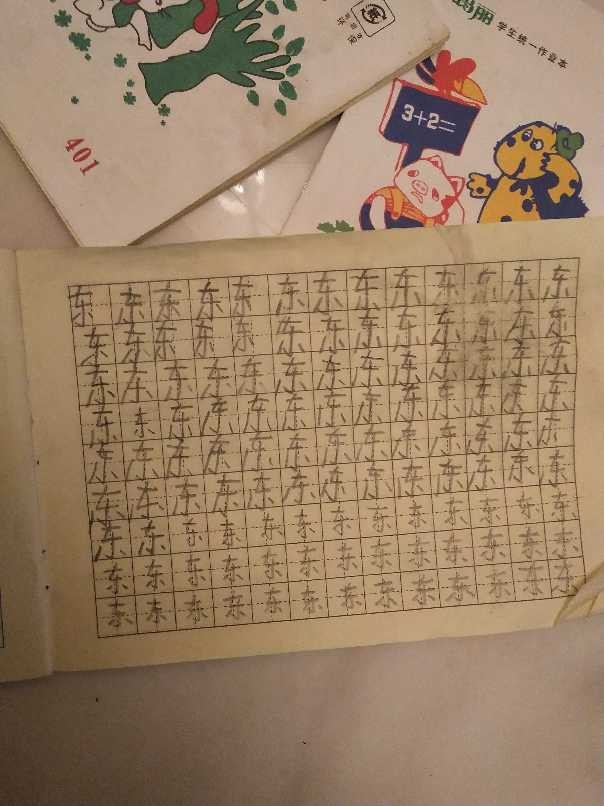 学生统一作业本
3+2=
401
东东东东东东东东东东东东东
东东东东东东东东东东东东东
东东东东东东东东东东东东东
东东东东东东东东东东东东东
东东东东东东东东东东东东东
东东东东东东东东东东东东东
东东东东东东东东东东东东东
东东东东东东东东东东东东东
东东东东东东东东东东东东东